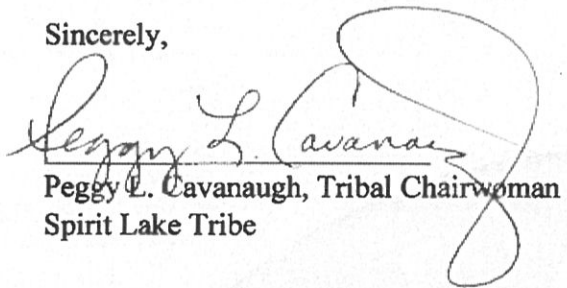 Sincerely,
Peggy L. Cavanaugh
Peggy L. Cavanaugh, Tribal Chairwoman
Spirit Lake Tribe